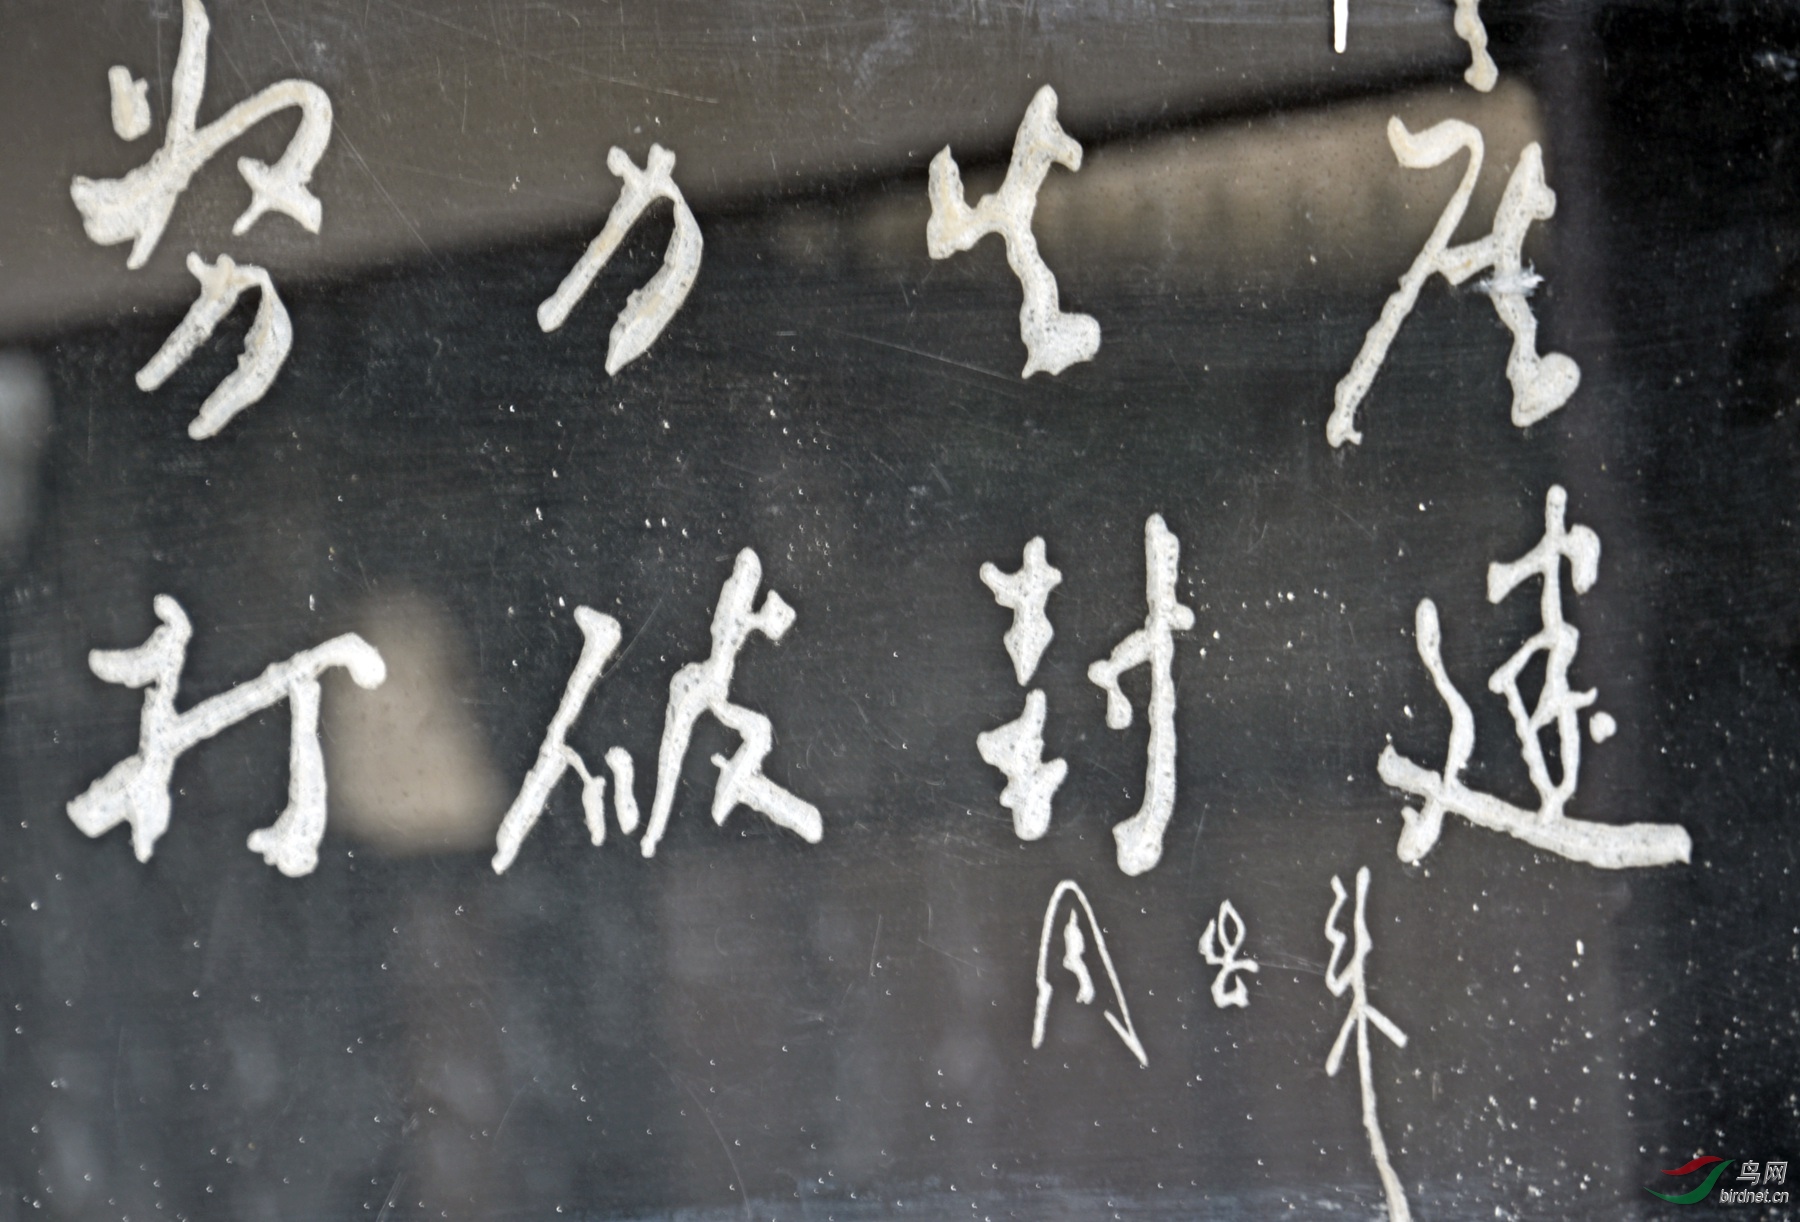 努力生產
打破封建
周恩来
鸟网
birdnet.cn